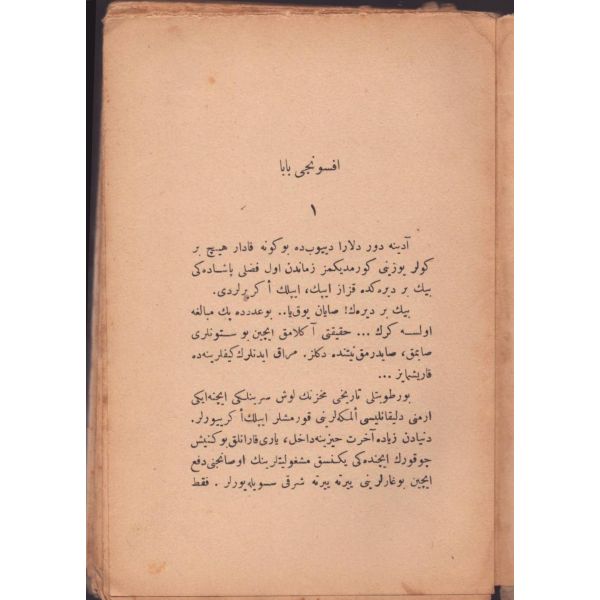 افسونجی بابا
١
آدینه دور دلارا دییوب‌ده بوکونه قادار هیچ بر
کولر یوزینی کورمدیکمز زماندن اول فضلی پاشاده‌کی
بیك بر دیره‌کده قزاز ایپك، ایپلك أکیررلردی.
بیك بر دیره‌ك! صایان یوق‌یا.. بو عددده پك مبالغه
اولسه کرك ... حقیقتی آکلامق ایچین بو ستونلری
صایمق، صایدرمق نیتنده دکلز. مراق ایدنلرك کیفلرینه‌ده
قاریشمایز ...
بو رطوبتلی تاریخی مخزنك لوش سرینلکی ایچنه ایکی
ارمنی دلیقانلیسی ألمکه‌لرینی قورمشلر ایپلك أکیرییورلر.
دنیادن زیاده آخرت حیزینه داخل، یاری قارانلق بو کنیش
چوقورك ایچنده‌کی یکنسق مشغولیتلرینك اوصانجنی دفع
ایچین بوغازلرینی ییرته ییرته شرقی سویله‌یورلر . فقط